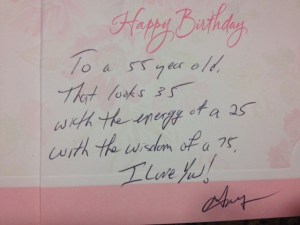 Happy Birthday
To a 55 year old,
That looks 35
with the energy of a 25
with the wisdom of a 75.
I Love You!